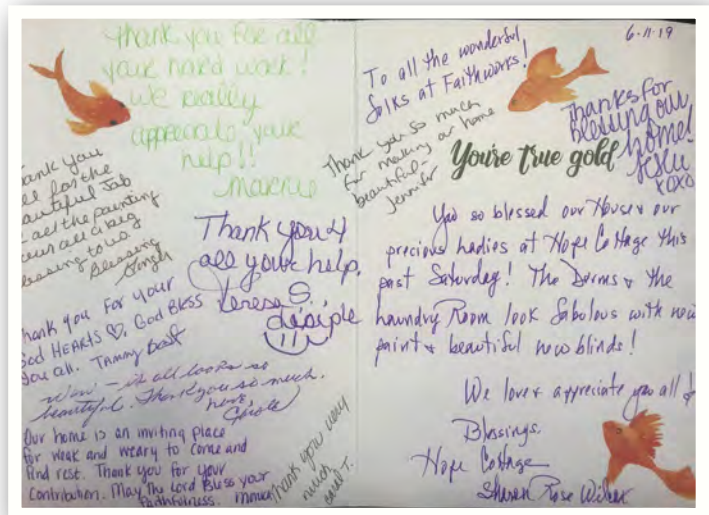 Thank you for all
your hard work!
We really
appreciate your
help!!
Thank you
all for the
beautiful Job
all the painting
your all a big
blessing to us
Blessing
Ginger
Thank you 4
all your help.
Teresa S.,
diciple
Thank you for your
God HEARTS God BLESS
you all. Tammy
Wow – it all looks so
beautiful. Thank you so much.
Love,
Our home is an inviting place
for weak and weary to come and
find rest. Thank you for your
Contribution. May The Lord Bless your
faithfulness.
Thank you very
much
T.
6-11-19
To all the wonderful
folks at Faithworks!
Thank you so much
for making our home
beautiful-
Jennifer
You're true gold
Thanks for
blessing our
home!
XOXO
You so blessed our House & our
precious Ladies at Hope Cottage this
past Saturday! The Dorms & the
Laundry Room look fabulous with new
paint & beautiful new blinds!
We love & appreciate you all
Blessings,
Hope Cottage
Sharon Rose